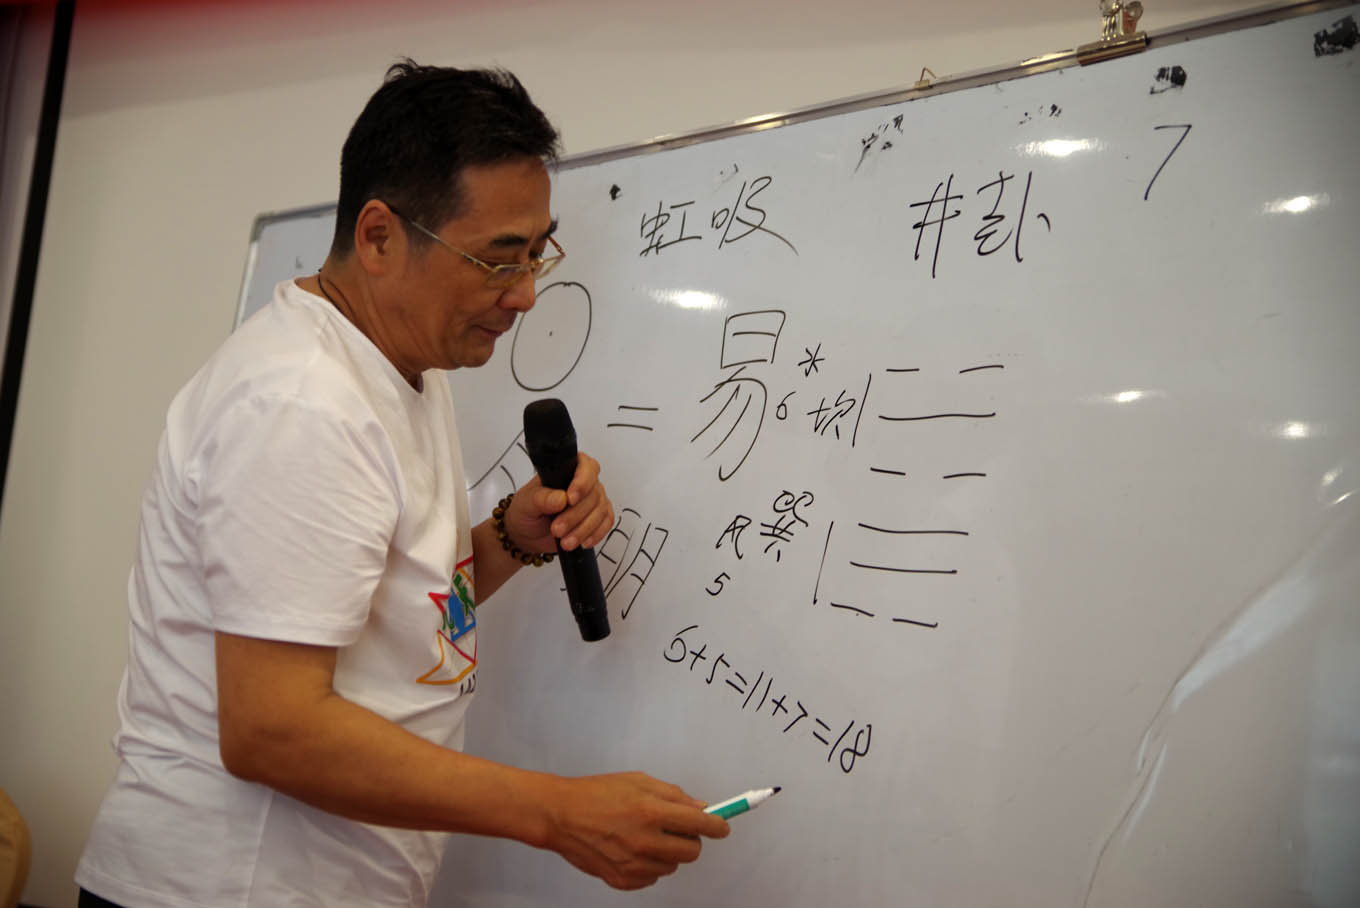 虹吸 井卦 7
= 易 水
6 坎
风 巽
5
明
6+5=11+7=18